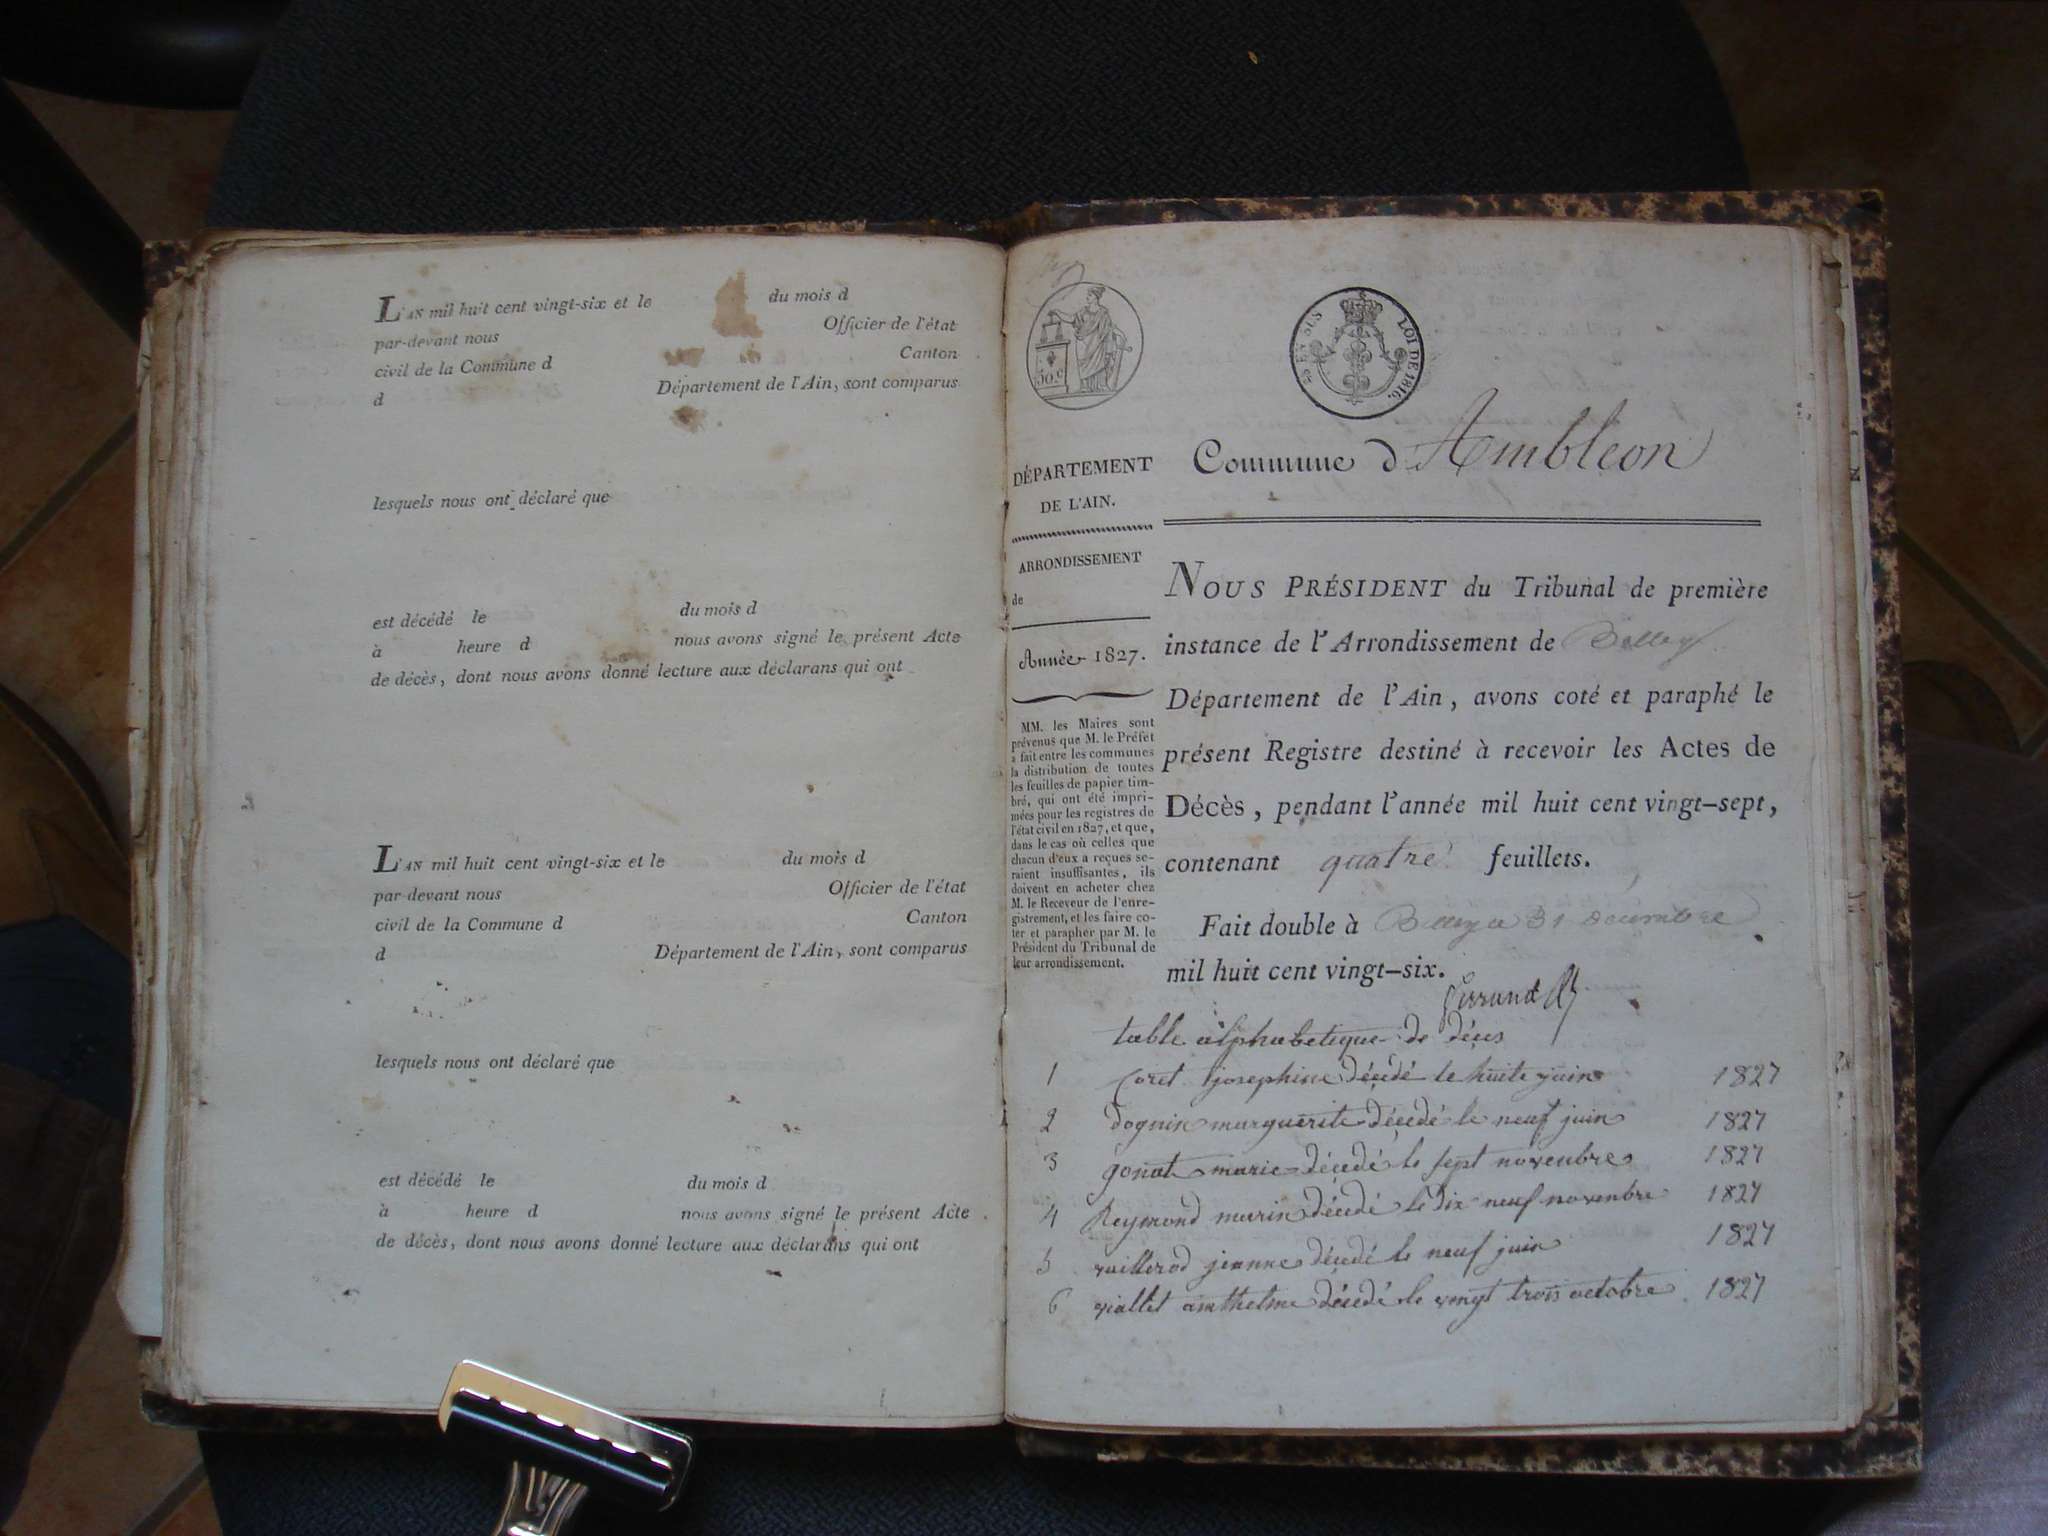 L'AN mil huit cent vingt-six et le du mois d
par-devant nous Officier de l'état
civil de la Commune d Canton
d Département de l'Ain, sont comparus
lesquels nous ont déclaré que
est décédé le du mois d
à heure d nous avons signé le présent Acte
de décès, dont nous avons donné lecture aux déclarans qui ont
L'AN mil huit cent vingt-six et le du mois d
par-devant nous Officier de l'état
civil de la Commune d Canton
d Département de l'Ain, sont comparus
lesquels nous ont déclaré que
est décédé le du mois d
à heure d nous avons signé le présent Acte
de décès, dont nous avons donné lecture aux déclarans qui ont
EN SUS LOI DE 1816.
DÉPARTEMENT
DE L'AIN.
ARRONDISSEMENT
de
Année 1827.
MM. les Maires sont
prévenus que M. le Préfet
a fait entre les communes
la distribution de toutes
les feuilles de papier tim-
bré, qui ont été impri-
mées pour les registres de
l'état civil en 1827, et que,
dans le cas où celles que
chacun d'eux a reçues se-
raient insuffisantes, ils
doivent en acheter chez
M. le Receveur de l'enre-
gistrement, et les faire co-
ter et parapher par M. le
Président du Tribunal de
leur arrondissement.
Commune d'Ambléon
NOUS PRÉSIDENT du Tribunal de première
instance de l'Arrondissement de Belley
Département de l'Ain, avons coté et paraphé le
présent Registre destiné à recevoir les Actes de
Décès, pendant l'année mil huit cent vingt-sept,
contenant quatre feuillets.
Fait double à Belley le 31 Décembre
mil huit cent vingt-six.
table alphabetique de déces
1 Coret josephine décédé le huite juin 1827
2 dognin marguerite décedé le neuf juin 1827
3 gonat marie décedé le sept novenbre 1827
4 Reymond marin décedé le dix neuf novenbre 1827
5 vuillerod jeanne décedé le neuf juin 1827
6 viallet anthelme décedé le vingt trois octobre 1827